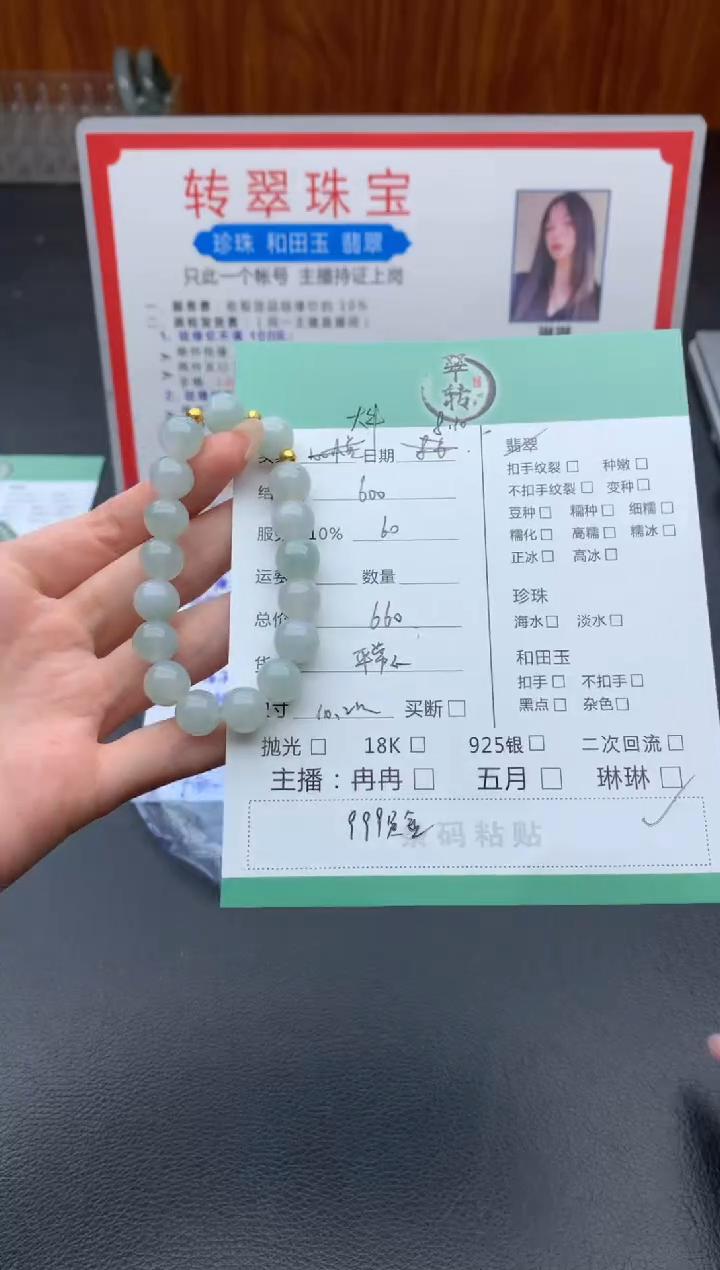 转翠珠宝
珍珠 和田玉 翡翠
只此一个帐号 主播持证上岗
翠转
8.10
日期
600
10% 60
数量
总价 660
寸 10.2m 买断□
翡翠
扣手纹裂□ 种嫩□
不扣手纹裂□ 变种□
豆种□ 糯种□ 细糯□
糯化□ 高糯□ 糯冰□
正冰□ 高冰□
珍珠
海水□ 淡水□
和田玉
扣手□ 不扣手□
黑点□ 杂色□
抛光□ 18K□ 925银□ 二次回流□
主播：冉冉□ 五月□ 琳琳□
999足金
条码粘贴